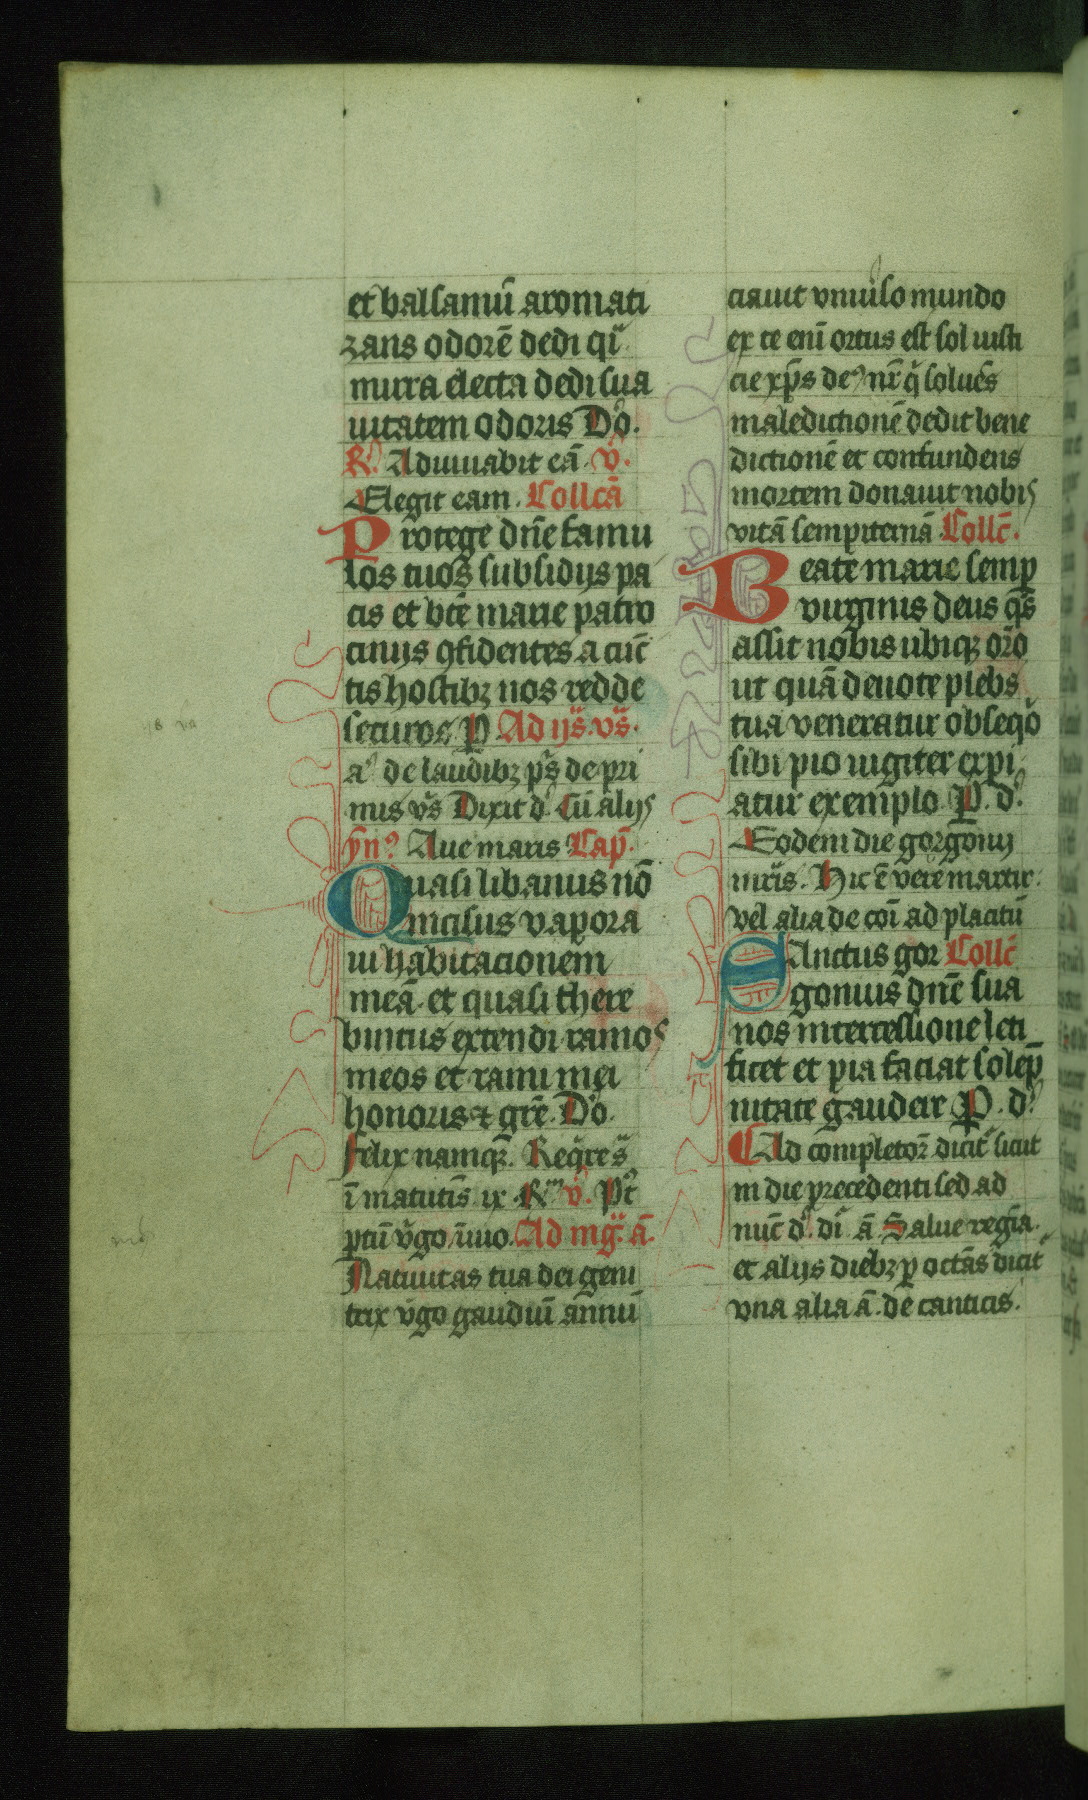 et balsamū aromati
zans odorē dedi qͥ
mirra electa dedi sua
uitatem odoris Dͦo.
R̷ᷣ. Adiuuabit eā. v̷.
Elegit eam. Collcā
Protege dn̄e famu
los tuos subsidijs pa
cis et bt̄e marie patro
cinijs ꝯfidentes a cūc
tis hostibꝫ nos redde
securos P̲. Ad ijs̄. vs̄.
aᷣ de laudibꝫ ps̄ de pri
mis vs̄ Dixit dᷣ. Cū alijs
yn̄ᷣ Aue maris Cap̄.
Quasi libanus nō
incisus vapora
ui habitacionem
meā et quasi there
bintus extendi ramos
meos et rami mei
honoris ⁊ grē. Dͦo.
Felix namqꝫ. Reqͥres̄
ī matutīs ix R̷ᵐ v̷. Pᷣt
ptū vͥgo īuio. Ad mḡ. ā.
Natiuitas tua dei geni
trix vͥgo gaudiū annū
ciauit vniuͥso mundo
ex te enī ortus est sol iusti
cie xp̄s deᷣ nr̄ qͥ soluēs
maledictionē dedit bene
dictionē et confundens
mortem donauit nobis
vitā sempiternā Collc̄.
Beate marie semp̲
virginis deus qs̄
assit nobis ubiqꝫ orō
ut quā deuote plebs
tua veneratur obseqͦ
sibi pio iugiter expi
atur exemplo. P̲. dᷣ.
Eodem die gorgonij
mrͥis. Hic ē vere martir.
vel alia de cōi ad placitū
Sanctus gor Collc̄
gonius dn̄e sua
nos intercessione leti
ficet et pia faciat solep̄
nitate gaudere P̲. dᷣ.
Ad completoꝝ dicitͬ sicut
in die precedenti sed ad
nūc dͥ. dī. ā. Salue regīa.
et alijs diebꝫ p̲ octās dicitͬ
vna alia ā. de canticis.